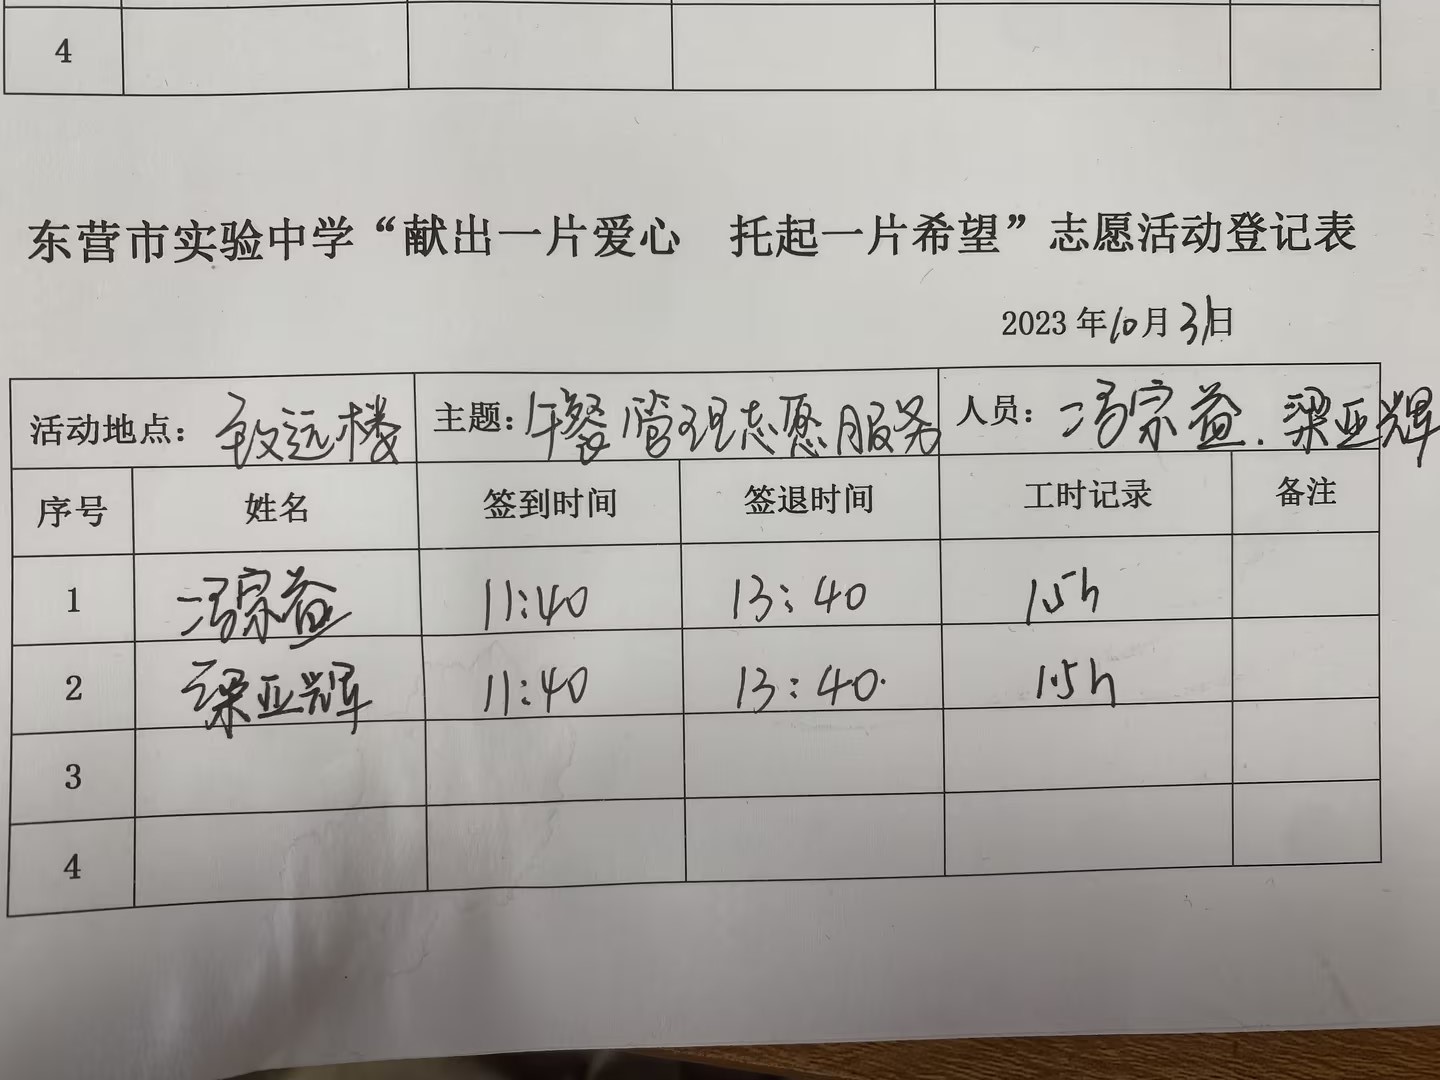 4
东营市实验中学“献出一片爱心 托起一片希望”志愿活动登记表
2023年10月31日
活动地点：致远楼 主题：午餐管理志愿服务 人员：冯宗益.梁亚辉
序号 姓名 签到时间 签退时间 工时记录 备注
1 冯宗益 11:40 13:40 1.5h
2 梁亚辉 11:40 13:40. 1.5h
3
4